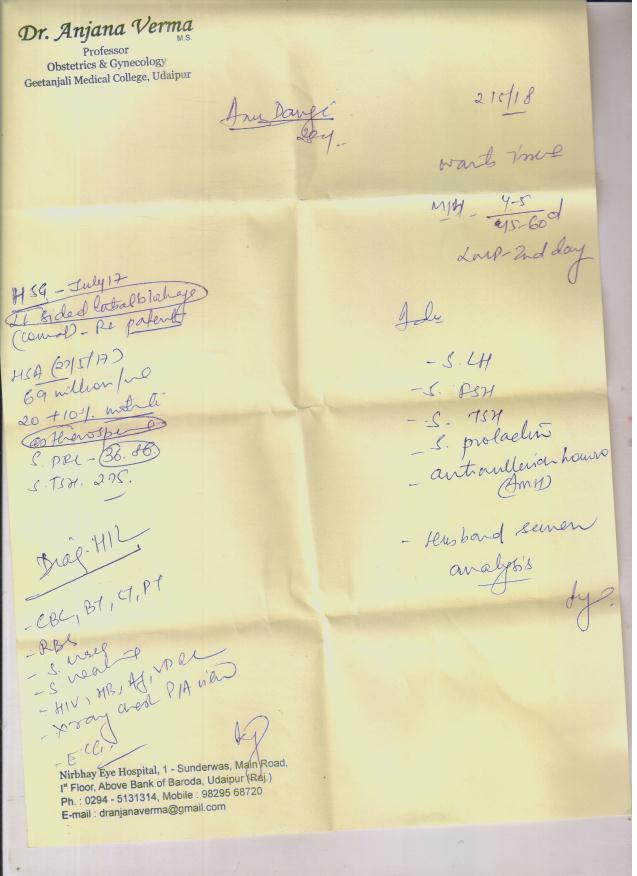 Dr. Anjana Verma
M.S.
Professor
Obstetrics & Gynecology
Geetanjali Medical College, Udaipur
Anu Dangi
28y.
2/5/18
wants issue
M/H - 4-5
45-60 d
LMP - 2nd day
HSG - July 17
Lt sided blockage
(cornual) - Rt patent
HSA (27/5/17)
69 million/ml
20 + 10%
S. PRL - 36.86
S. TSH. 2.75.
Adv
- S. LH
- S. FSH
- S. TSH
- S. prolactin
- antimullerian hormo
(AMH)
- Husband semen
analysis
Diag. H/L
- CBC, BT, CT, PT
- RBS
- S. urea
- S creatinine
- HIV, HB, Ag, VDRL
- X-ray chest P/A view
- ECG
Nirbhay Eye Hospital, 1 - Sunderwas, Main Road,
Ist Floor, Above Bank of Baroda, Udaipur (Raj.)
Ph. : 0294 - 5131314, Mobile : 98295 68720
E-mail : dranjanaverma@gmail.com